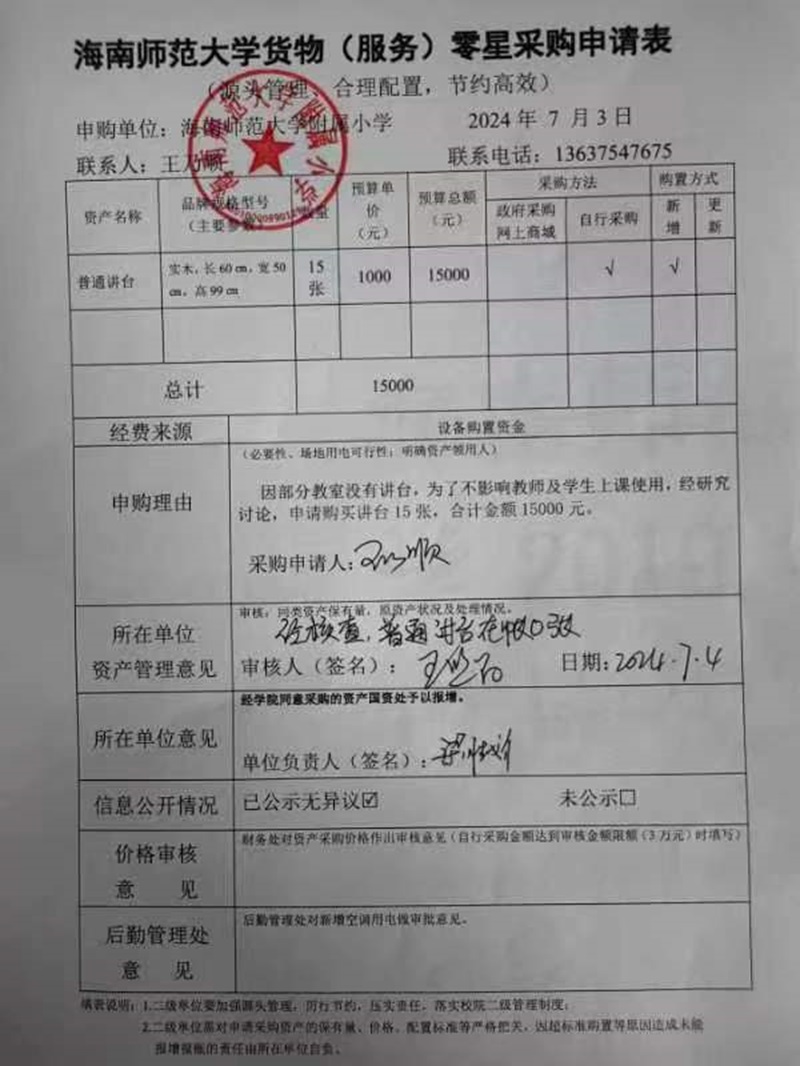 海南师范大学货物（服务）零星采购申请表
（源头管理、合理配置，节约高效）
申购单位：海南师范大学附属小学 2024年7月3日
联系人：王乃顺 联系电话：13637547675
资产名称 品牌规格型号（主要参数） 数量 预算单价（元） 预算总额（元） 采购方法 购置方式
政府采购网上商城 自行采购 新增 更新
普通讲台 实木，长60㎝，宽50㎝，高99㎝ 15张 1000 15000 √ √
总计 15000
经费来源 设备购置资金
申购理由
（必要性、场地用电可行性；明确资产领用人）
因部分教室没有讲台，为了不影响教师及学生上课使用，经研究
讨论，申请购买讲台15张，合计金额15000元。
采购申请人：王乃顺
所在单位
资产管理意见
审核：同类资产保有量，原资产状况及处理情况。
经核查，普通讲台在帐0张
审核人（签名）： 日期：2024.7.4
所在单位意见
经学院同意采购的资产国资处予以报增。
单位负责人（签名）：
信息公开情况 已公示无异议☑ 未公示□
价格审核
意 见
财务处对资产采购价格作出审核意见（自行采购金额达到审核金额限额（3万元）时填写）
后勤管理处
意 见
后勤管理处对新增空调用电做审批意见。
填表说明：1.二级单位要加强源头管理，厉行节约，压实责任，落实校院二级管理制度；
2.二级单位需对申请采购资产的保有量、价格、配置标准等严格把关，因超标准购置等原因造成未能
报增报账的责任由所在单位自负。